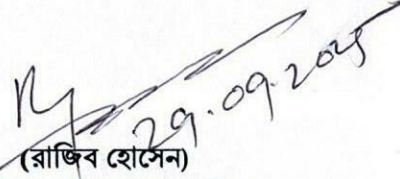 29.09.2025
(রাজিব হোসেন)